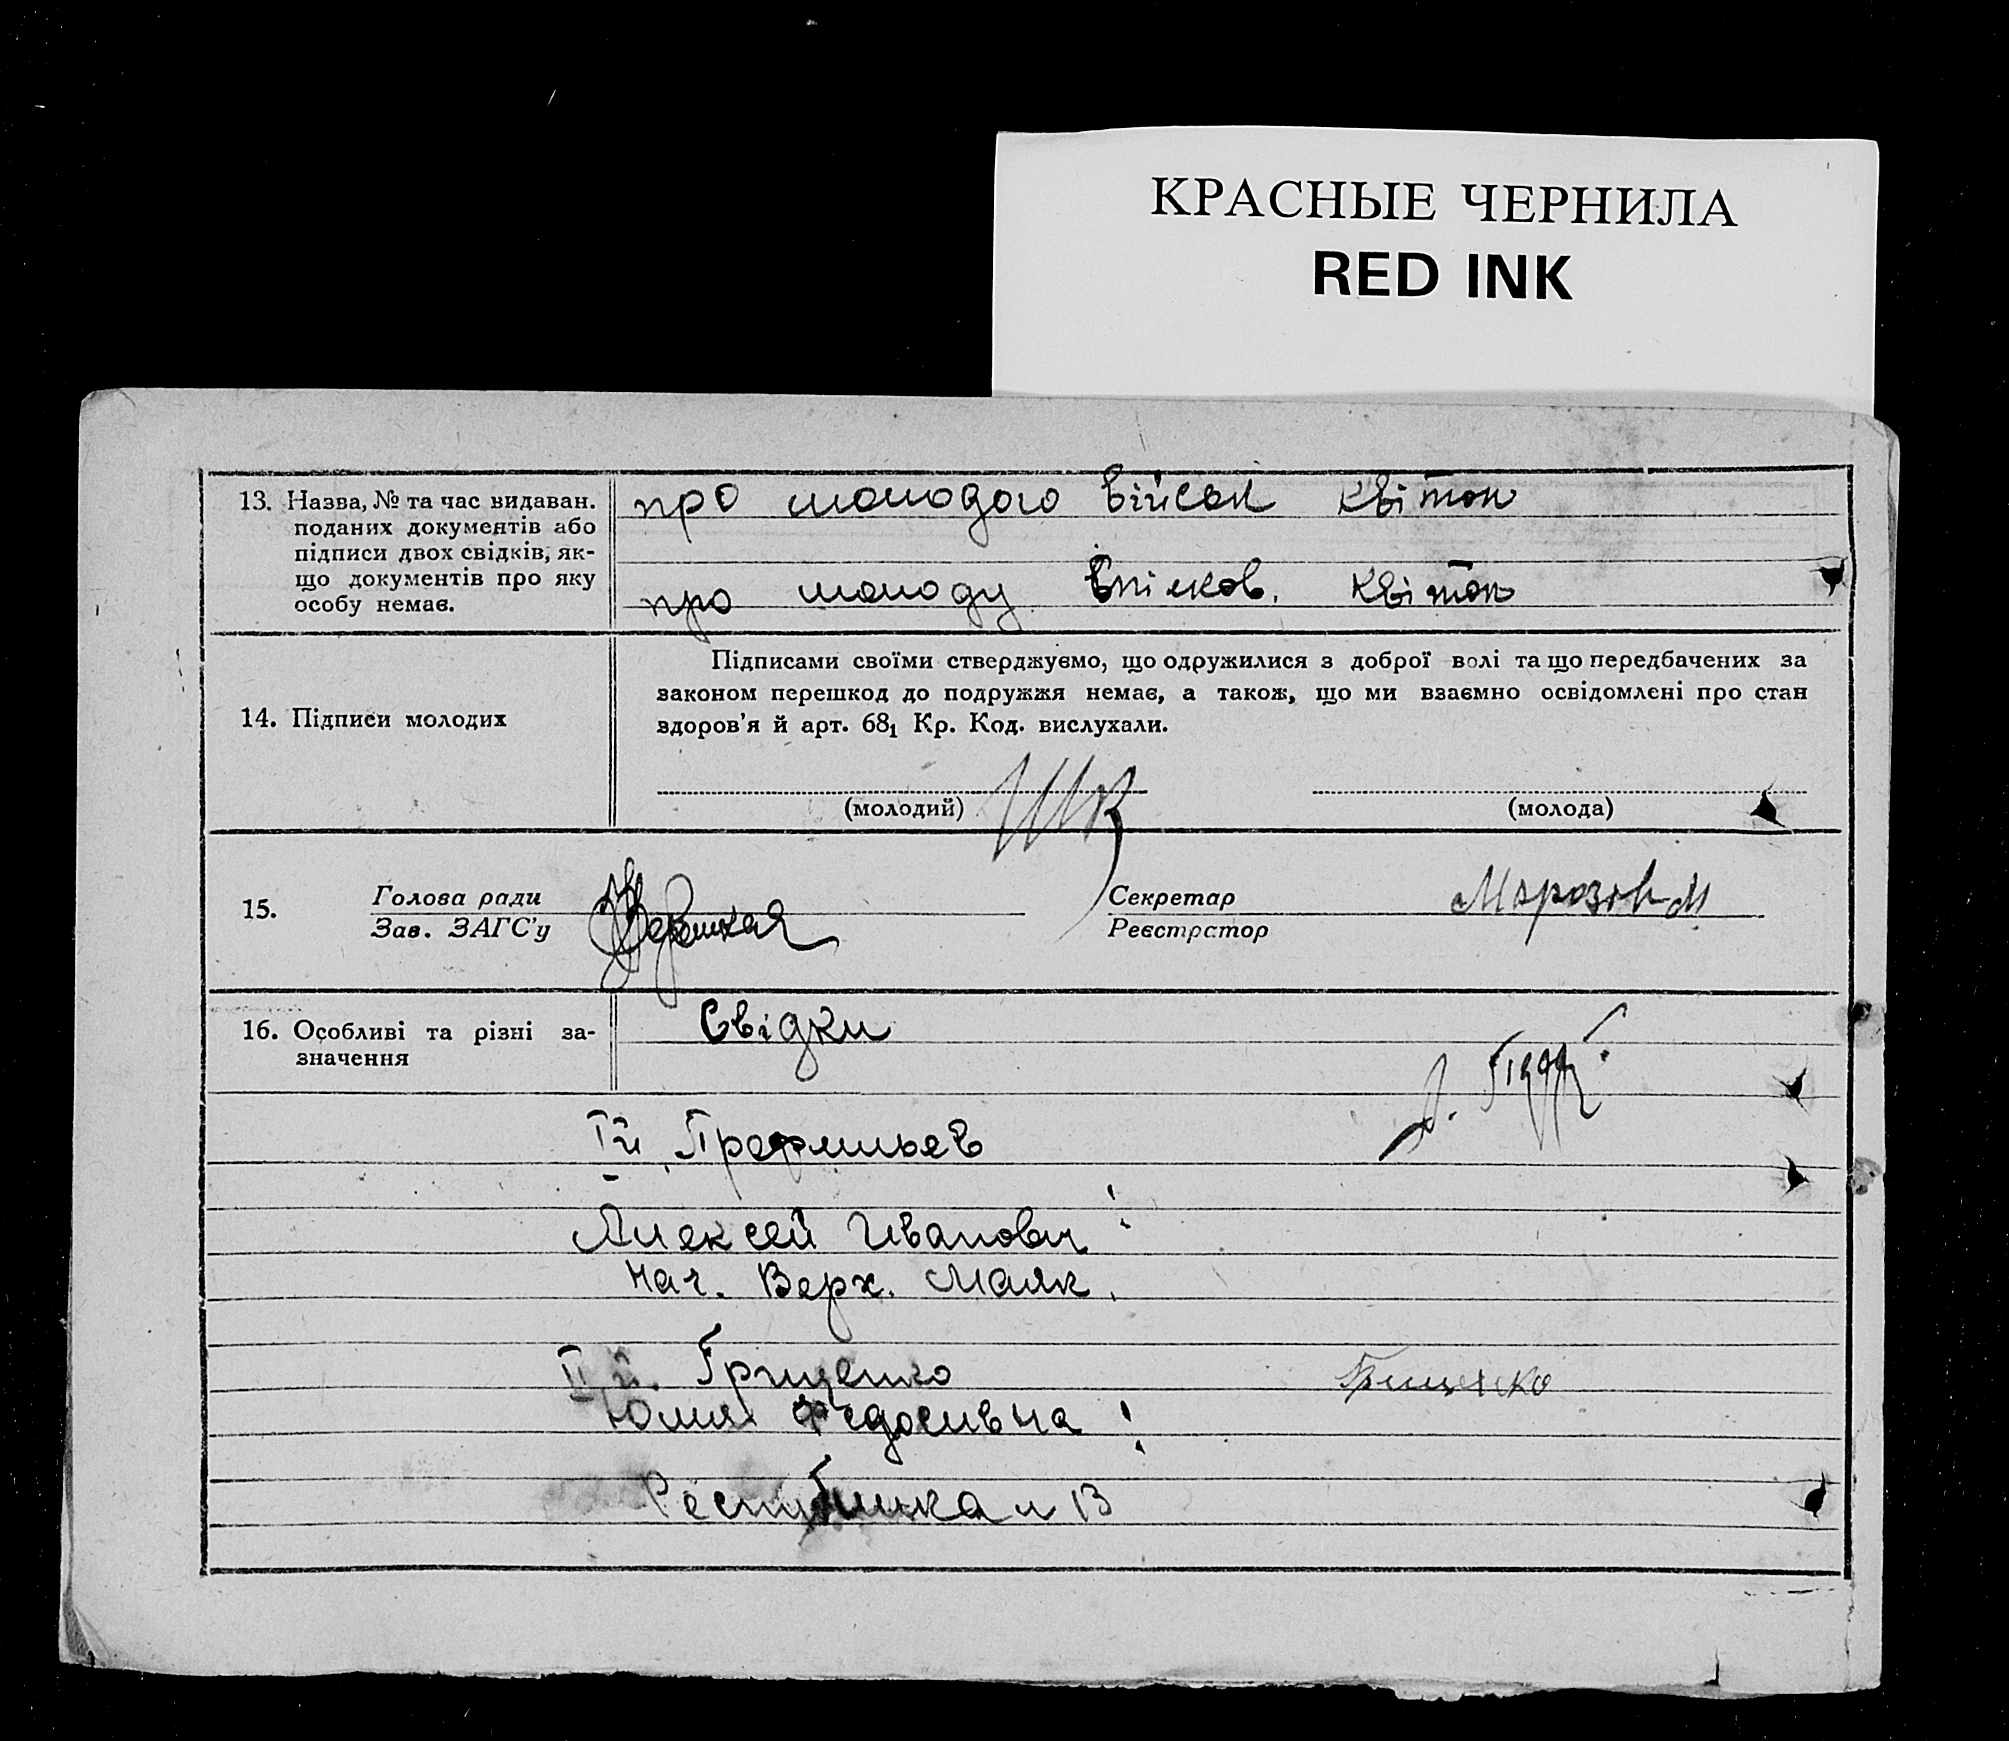 КРАСНЫЕ ЧЕРНИЛА
RED INK
13. Назва, № та час видаван.
поданих документів або
підписи двох свідків, як-
що документів про яку
особу немає.
про молодого військ квіток
про молоду спілков. квіток
14. Підписи молодих
Підписами своїми стверджуємо, що одружилися з доброї волі та що передбачених за
законом перешкод до подружжя немає, а також, що ми взаємно освідомлені про стан
здоров'я й арт. 68₁ Кр. Код. вислухали.
(молодий)
(молода)
15.
Голова ради
Зав. ЗАГС'у
Секретар
Реєстратор
Морозов М
16. Особливі та різні за-
значення
Свідки
Iй
Алексей Иванович
нач. Верх. Маяк.
IIй. Грищенко
Грищенко
Юлия Федосивна
Республика н 13